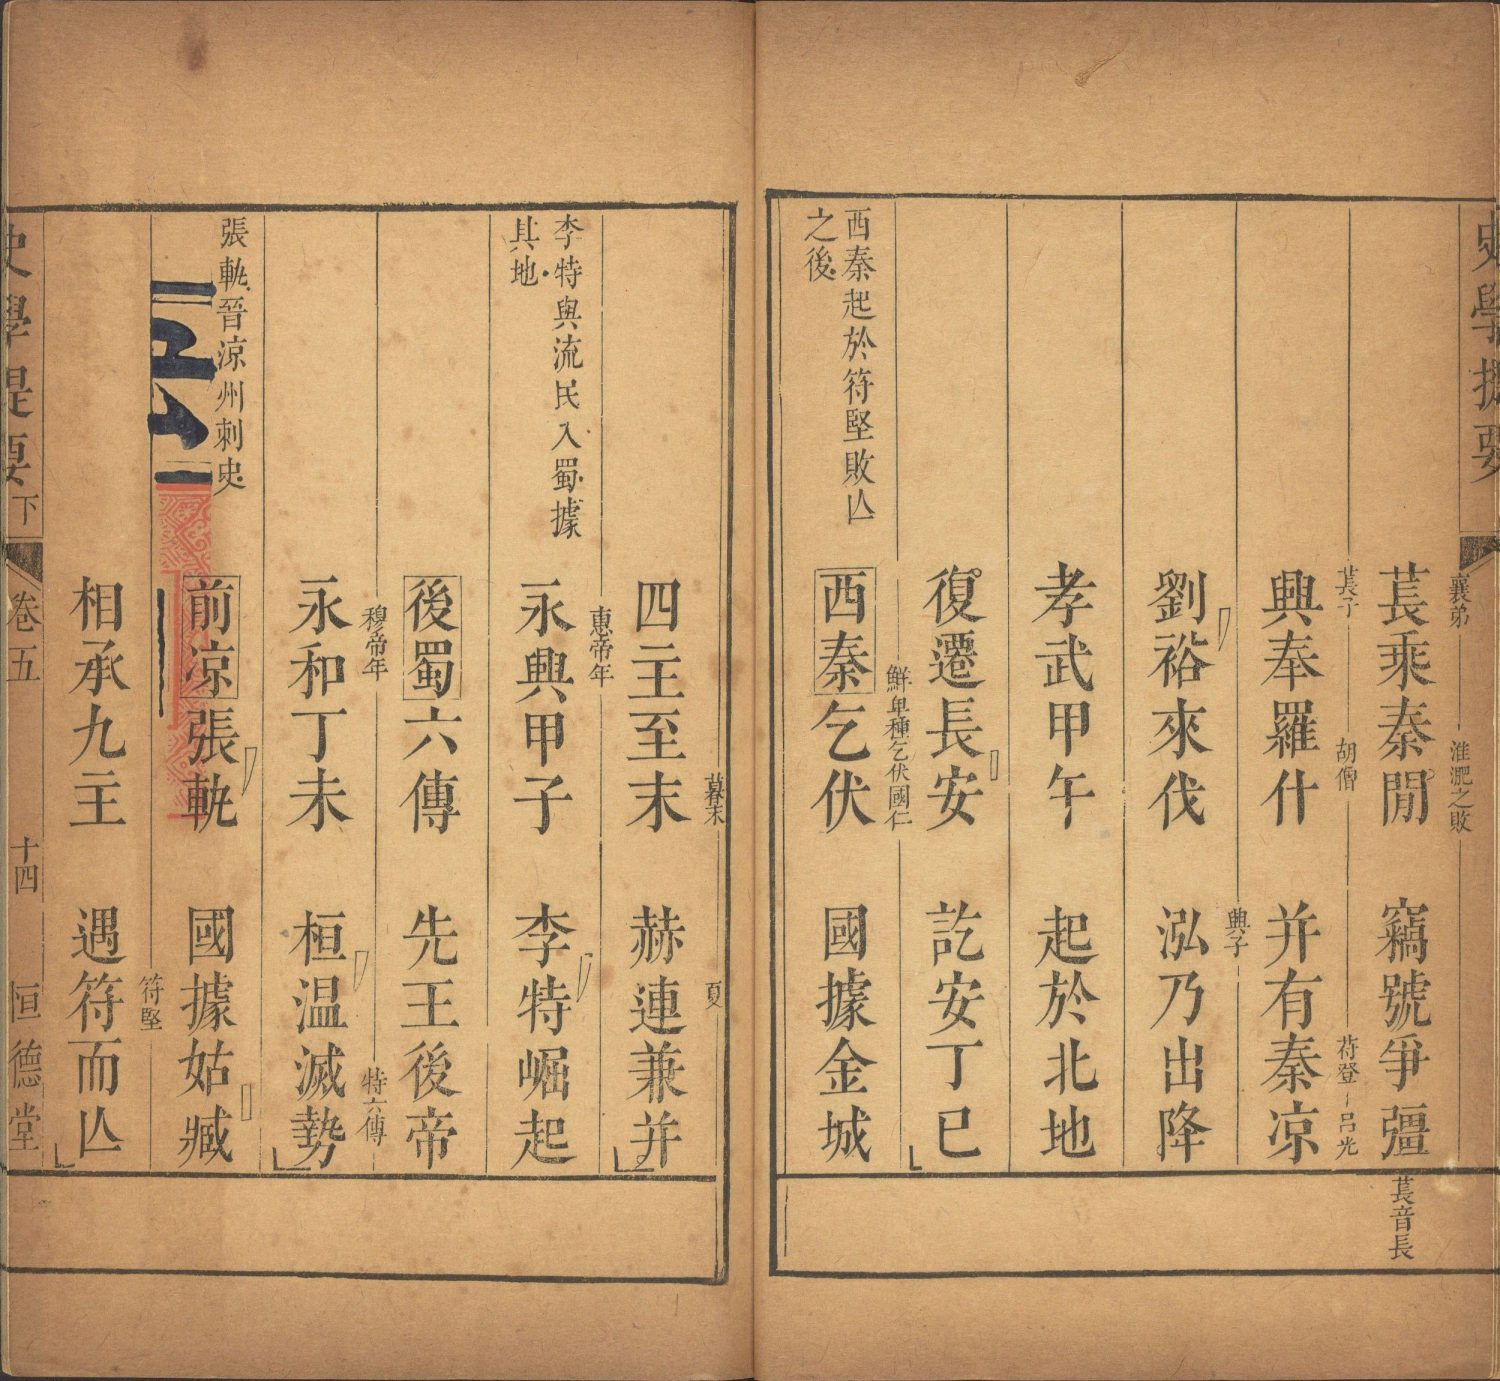 史學提要
襄弟 淮淝之敗
萇乘秦閒 竊號爭彊
萇音長
萇子 胡僧 苻登 呂光
興奉羅什 幷有秦涼
興子
劉裕來伐 泓乃出降
孝武甲午 起於北地
復遷長安 訖安丁巳
鮮卑種乞伏國仁
西秦起於符堅敗亾
之後
西秦乞伏 國據金城
暮末 夏
四主至末 赫連兼并
惠帝年
李特與流民入蜀據
其地
永興甲子 李特崛起
後蜀六傳 先王後帝
穆帝年 特六傳
永和丁未 桓温滅勢
張軌晉涼州刺史
前凉張軌 國據姑臧
符堅
相承九主 遇符而亾
史學提要下 卷五 十四 恒德堂